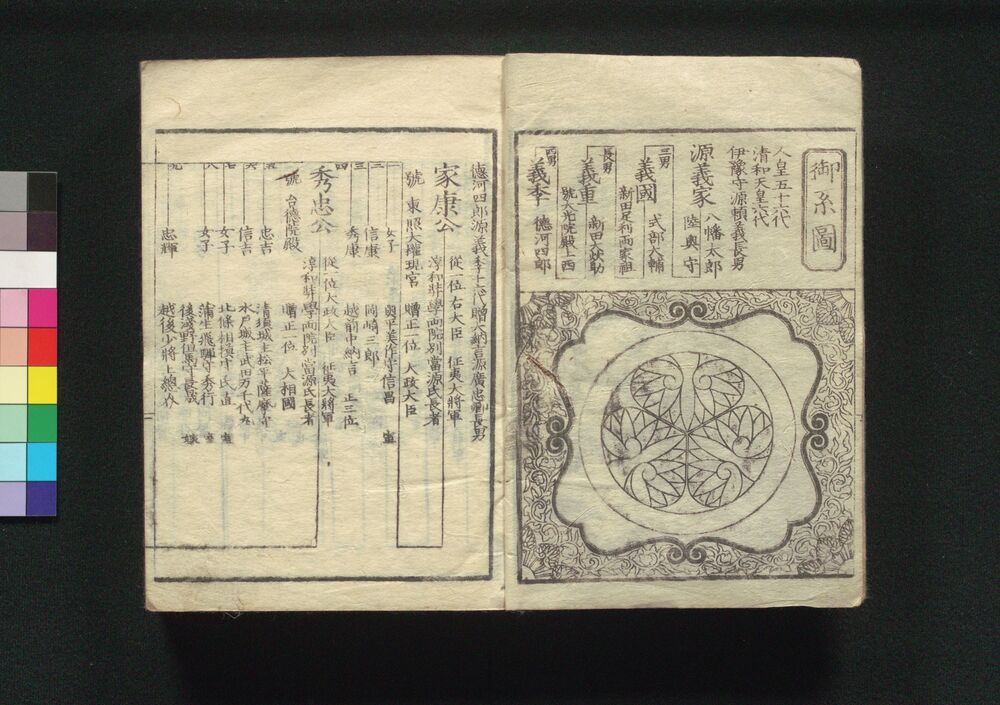 御系圖
人皇五十六代
清和天皇六代
伊豫守源頼義長男
源義家 八幡太郎
陸奥守
三男
義國 式部大輔
新田足利両家祖
長男
義重 新田大炊助
號大光院殿上西
四男
義季 德河四郎
德河四郎源義季十六代贈大納言源廣忠卿長男
家康公 從一位右大臣 征夷大将軍
淳和弉學両院別當源氏長者
號 東照大權現宮 贈正一位 大政大臣
一 女子 奥平美作守信昌 室
二 信康 岡崎三郎
三 秀康 越前中納言 正三位
四
秀忠公 從一位大政大臣 征夷大将軍
淳和弉學両院別當源氏長者
號 台德院殿 贈正一位 大相國
忠吉 清須城主松平薩摩守
信吉 水戸城主武田万千代丸
女子 北條相模守氏直 室
女子 蒲生飛驒守秀行 室
後浅野但馬守長晟 嫁
忠輝 越後少将上総介